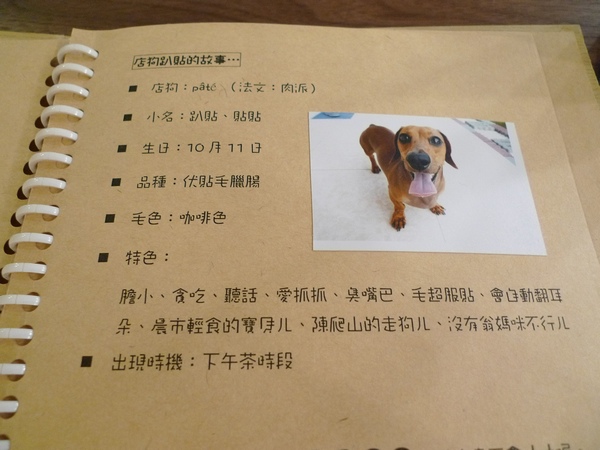 店狗趴貼的故事…
■ 店狗：pâté （法文：肉派）
■ 小名：趴貼、貼貼
■ 生日：10月11日
■ 品種：伏貼毛臘腸
■ 毛色：咖啡色
■ 特色：
膽小、貪吃、聽話、愛抓抓、臭嘴巴、毛超服貼、會自動翻耳
朵、晨市輕食的寶貝儿、陳爬山的走狗儿、沒有翁媽咪不行儿
■ 出現時機：下午茶時段